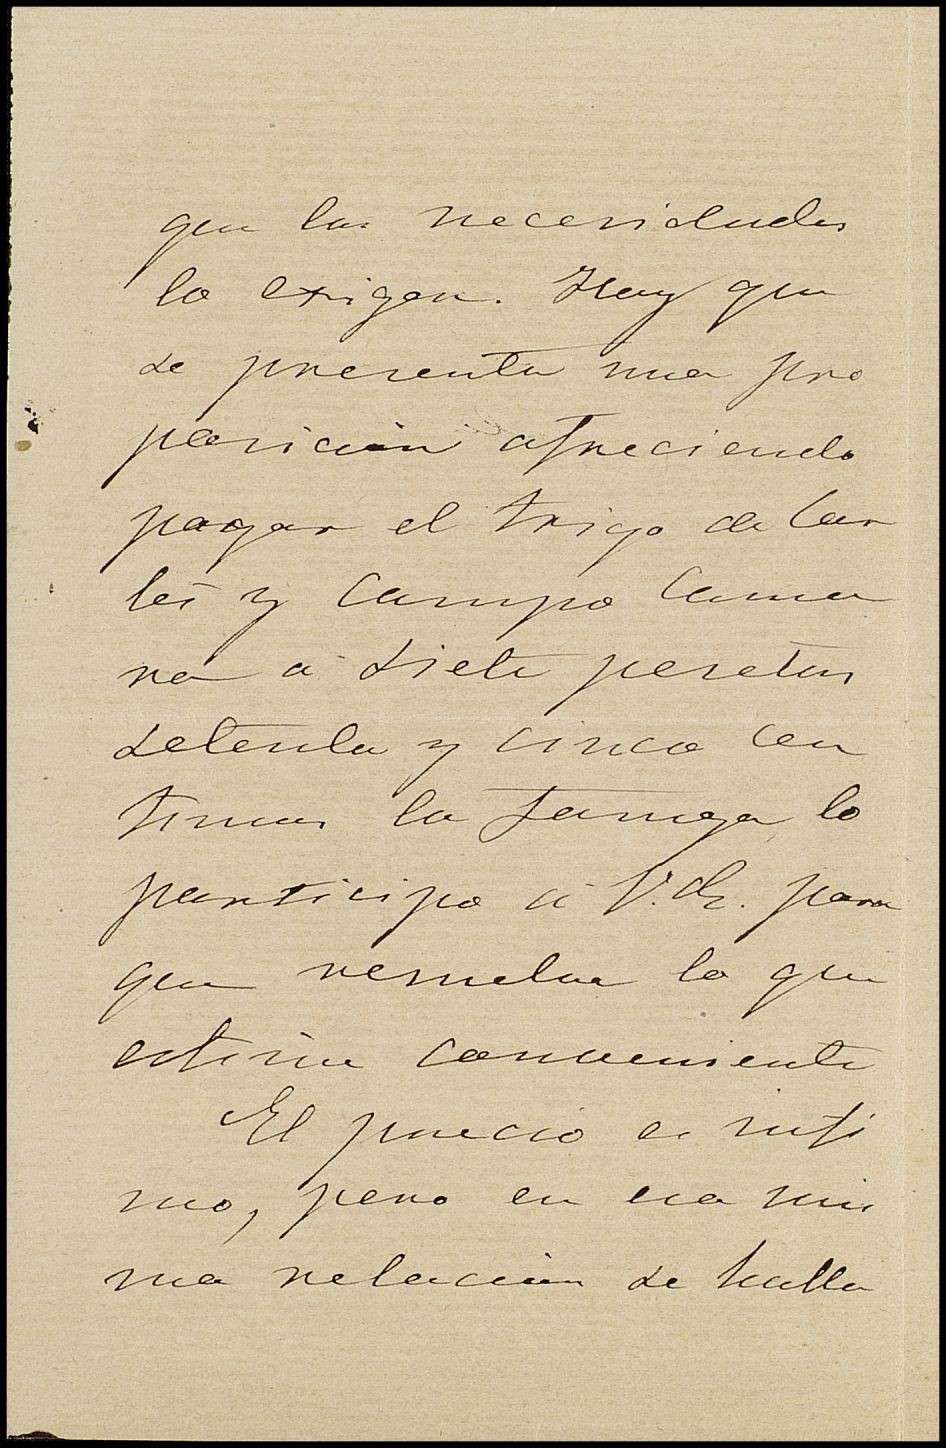 que las necesidades
lo exigen. Hay que
se presenta una pro
posición ofreciendo
pagar el trigo de Car
lés y Campo Cama
ra á siete pesetas
setenta y cinco cen
timos la fanega, lo
participo á V.E. para
que resuelva lo que
estime conveniente
El precio es infi
mo, pero en esa mis
ma relacion se halla